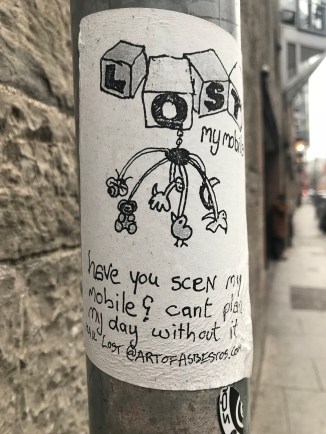 LOST
my mobile
have you SCEN my
mobile & cant plan
my day without it
LOST @ARTOFASBESTOS.COM